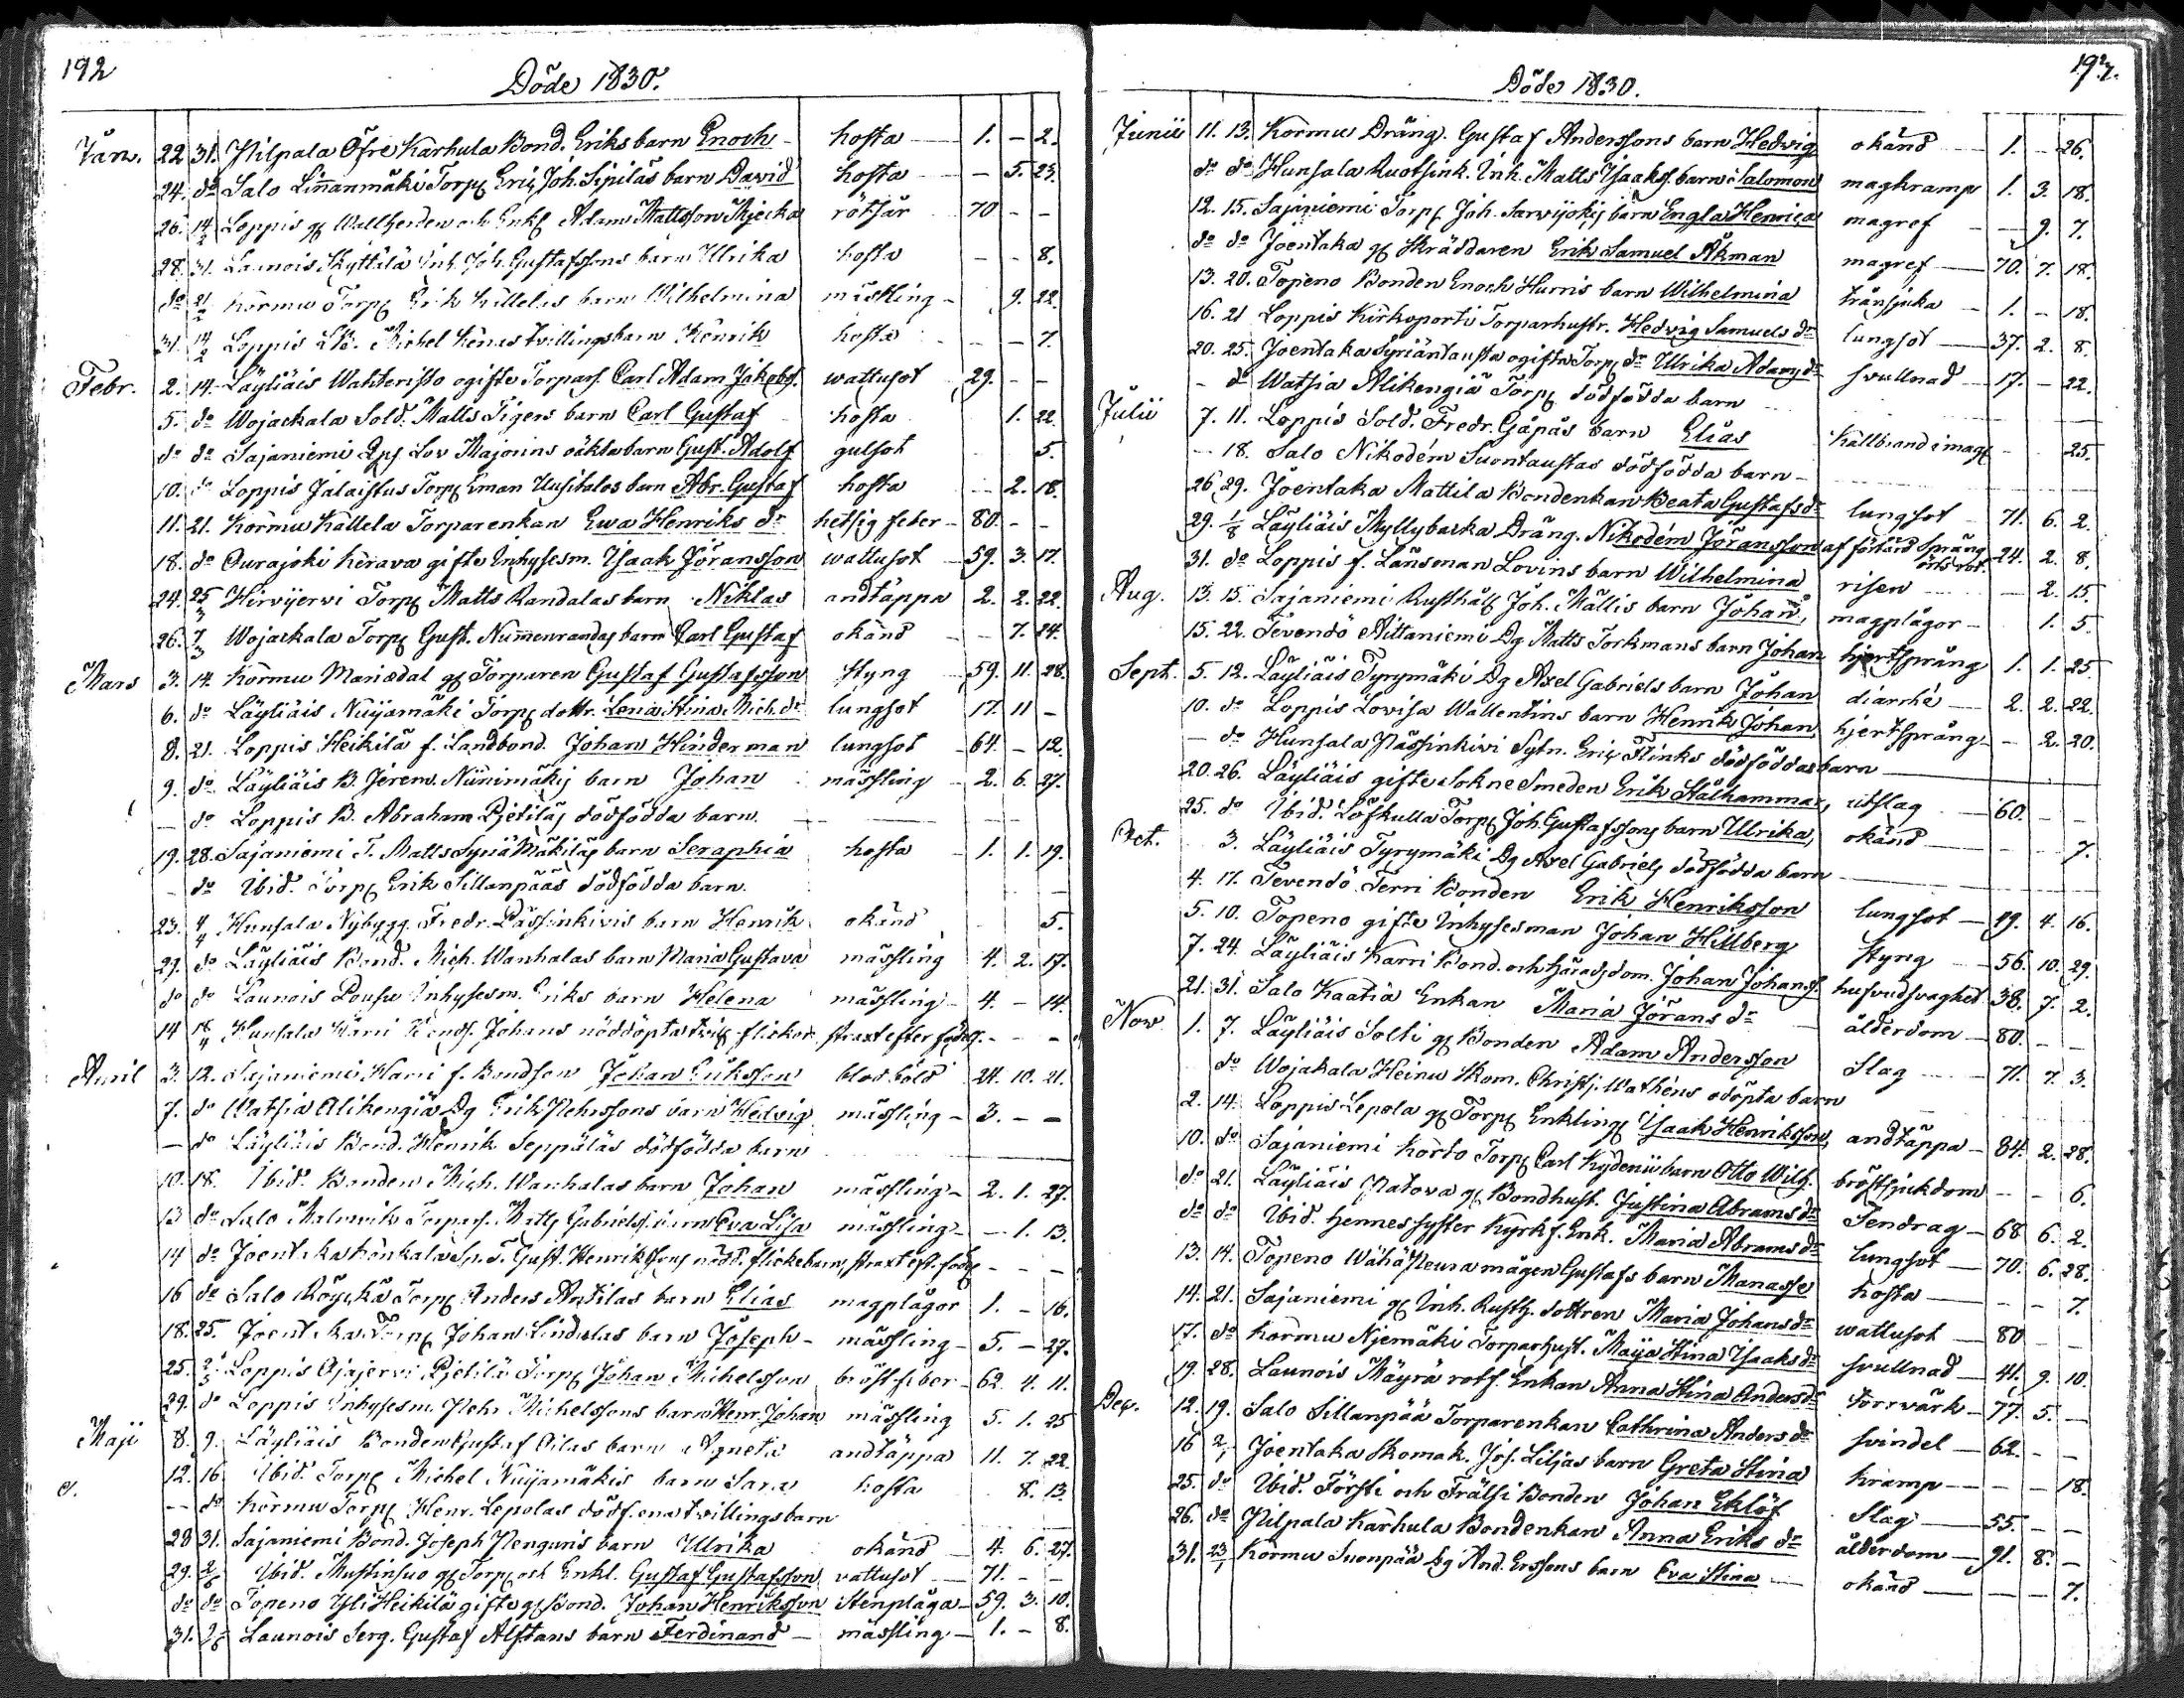 192
Döde 1830.
Jan. 22 31. Pilpala Öfre Karhula Bond. Eriks barn Enoch - hosta 1. - 2.
24. do Salo Linanmäki Torp Eric Joh. Sipiläs barn David hosta - 5. 23.
26. 14/2 Loppis Wallherden och Enkl Adam Mattsson rötsår 70 - -
28. 31. Launois Skyttälä Inh. Joh. Gustafssons barn Ulrika hosta - - 8.
do 21/2 Kormu Torp Erik Källelas barn Wilhelmina mässling - 9. 22.
31. 14/2 Loppis Michel tvillingsbarn Henrik hosta - - 7.
Febr. 2. 14. Läyliäis Wahteristo ogifte Torpars. Carl Adam Jakobs. wattusot 29. - -
5. do Wojackala Sold. Matts Tigers barn Carl Gustaf hosta 1. 22.
do do Sajaniemi Lov Majorins oäkta barn Gust. Adolf gulsot 5.
10. do Loppis Jalaistus Torp Eman Uusitalos barn Abr. Gustaf hosta - 2. 18.
11. 21. Kormu Källela Torparenkan Ewa Henriks dr hetsig feber - 80. - -
18. do Ourajoki Kerava gifte Inhysesm. Isaak Jöransson wattusot 59. 3. 17.
24. 25/3 Hirvijervi Torp Matts Randalas barn Niklas andtäppa 2. 2. 22.
26. 7/3 Wojackala Torp Gust. Numenrandas barn Carl Gustaf okänd - 7. 24.
Mars 3. 14. Kormu Mariædal Torparen Gustaf Gustafsson Styng 59. 11. 28.
6. do Läyliäis Nuijamäki Torp dottr. Lena Stina Mich. dr lungsot 17. 11 -
8. 21. Loppis Heikilä f. Landbond. Johan Hinderman lungsot - 64. - 12.
9. do Läyliäis B. Jerem. Niinimäkis barn Johan mässling - 2. 6. 27.
- do Loppis B. Abraham Pietiläs dödfödda barn.
19. 28. Sajaniemi T. Matts Syriä Mäkiläs barn Seraphia hosta - 1. 1. 19.
- do Ibid. Torp Erik Sillanpääs dödfödda barn.
23. 4/4 Hunsala Nybygg. Fredr. Passinkivis barn Henrik okänd 5.
29. do Läyliäis Bond. Mich. Wanhalas barn Maria Gustava mässling 4. 2. 17.
do do Launois Pousu Inhysesm. Eriks barn Helena mässling - 4. - 14.
14 18/4 Hunsala Johans nöddöpta flickor straxt efter föds. - - -
April 3. 12. Sajaniemi Harri f. Bondson Johan Eriksson blodböld 24. 10. 21.
7. do Watsia Alikengiä Dg Erik Pehrssons barn Hedvig mässling - 3. - -
- do Läyliäis Bond. Henrik Seppäläs dödfödda barn
10. 18. Ibid. Bonden Mich. Wanhalas barn Johan mässling - 2. 1. 27.
13 do Salo Torpars. Matts Gabrielss. barn Eva Lisa mässling - - 1. 13.
14 do Joentaka Gust. Henrikssons nödd. flickebarn, straxt eft. föds - - -
16 do Salo Röyskä Torp Anders Antilas barn Elias magplågor 1. - 16.
18. 25. Joentaka Torp Johan barn Joseph - mässling - 5. - 27.
25. 2/5 Loppis Ojajervi Pietilä Torp Johan Michelsson bröstfeber - 62. 4. 11.
29. do Loppis Inhysesm. Pehr Michelssons barn Henr. Johan mässling 5. 1. 25
Maji 8. 9. Läyliäis Bonden Gustaf Oilas barn Agneta andtäppa 11. 7. 22.
12. 16 Ibid. Torp Michel Nuijamäkis barn Sara hosta 8. 13.
- do Kormu Torp Henr. Lepolas dödf. ena tvillingsbarn
28 31. Sajaniemi Bond. Joseph Penguins barn Ulrika okänd - 4. 6. 27.
29. 2/6 Ibid. Mustinsuo Torp och Enkl. Gustaf Gustafsson vattusot - 71. - -
do do Topeno Yli Heikilä gifte Bond. Johan Henriksson Stenplåga - 59. 3. 10.
31. Launois Serg. Gustaf Alstans barn Ferdinand - mässling - 1. - 8.
Döde 1830.
Junii 11. 13. Kormu Dräng. Gustaf Anderssons barn Hedvig okänd 1. - 26.
do do Hunsala Ruotsink. Inh. Matts Isaaks. barn Salomon magkramp 1. 3. 18.
12. 15. Sajaniemi Torp Joh. Sarvijokis barn Engla Henrica magref - 9. 7.
do do Joentaka Skräddaren Erik Samuel Åkman magref 70. 7. 18.
13. 20. Topeno Bonden Enoch Hurris barn Wilhelmina trånsjuka - 1. - 18.
16. 21 Loppis Kirkoporti Torparhustr. Hedvig Samuels dr lungsot 37. 2. 8.
20. 25. Joentaka Syriäntausta ogifta Torp dr Ulrika Adams dr svullnad 17. - 22.
- do Watsia Alikengiä Torp dödfödda barn
Julii 7. 11. Loppis Sold. Fredr. Gåpås barn Elias Kallbrand i mag - - 25.
- 18. Salo Nikodém Suontaustas dödfödda barn -
26. 29. Joentaka Mattila Bondenkan Beata Gustafs dr lungsot - 71. 6. 2.
29. 1/8 Läyliäis Myllybacka Dräng. Nikodém Jöransson af förtärd Spräng örts rot. 24. 2. 8.
31. do Loppis f. Länsman Lovins barn Wilhelmina risen - 2. 15.
Aug. 13. 15. Sajaniemi Rusthåll Joh. Mällis barn Johan, magplågor - 1. 5.
15. 22. Tevendö Aittaniemi Dg Matts Torkmans barn Johan hjertsprång 1. 1. 25.
Sept. 5. 12. Läyliäis Tyrymäki Dg Axel Gabriels barn Johan diarrhé 2. 2. 22.
10. do Loppis Lovisa Wallentins barn Henrik Johan hjertsprång - - 2. 20.
- do Hunsala Passinkivi Sytn. Eric Flinks dödföddas barn
20. 26. Läyliäis gifte Sokne Smeden Erik Stålhammar, utslag 60. - -
25. do Ibid. Löfkulla Torp Joh. Gustafssons barn Ulrika, okänd - - 7.
Oct. 3. Läyliäis Tyrymäki Dg Axel Gabriels dödfödda barn
4. 17. Tevendö Terri Bonden Erik Henriksson lungsot - 49. 4. 16.
5. 10. Topeno gifte Inhysesman Johan Hillberg Styng 56. 10. 29.
7. 24. Läyliäis Karri Bond. och Häradsdom. Johan Johans. hufvudsvaghet 38. 7. 2.
21. 31. Salo Kaatia Enkan Maria Jörans dr ålderdom 80. - -
Nov. 1. 7. Läyliäis Solti Bonden Adam Andersson Slag 71. 7. 3.
do Wojakala Heinu Skom. Christj. Wathéns odöpta barn
2. 14. Loppis Lepola Torp Enkling Isaak Henriksson, andtäppa - 84. 2. 28.
10. do Sajaniemi Korto Torp Carl Kydenii barn Otto Wilh. bröstsjukdom - - 6.
do 21. Läyliäis Natova Bondhust. Justina Abrams dr Sendrag - 68 6. 2.
do do Ibid. Hennes syster Kyrkf. Enk. Maria Abrams dr lungsot - 70. 6. 28.
13. 14. Topeno Wähä mågen Gustafs barn Manasse hosta - - 7.
14. 21. Sajaniemi Inh. Rusth. dottren Maria Johans dr wattusot - 80 -
17. do Kormu Njemäki Torparhust. Maija Stina Isaaks dr svullnad - 41. 9. 10.
19. 28. Launois Mäyrä rotf. Enkan Anna Stina Anders dr torrvärk - 77. 5. -
Dec. 12. 19. Salo Sillanpää Torparenkan Cathrina Anders dr svindel 62. - -
16 2/1 Joentaka Skomak. Jos. Liljas barn Greta Stina kramp - - 18.
25. do Ibid. Försti och Frälsi Bonden Johan Eklöf Slag 55. - -
26. do Pilpala Karhula Bondenkan Anna Eriks dr ålderdom 91. 8. -
31. 23/1 Kormu Suonpää Dg And. Erssons barn Eva Stina okänd - - 7.